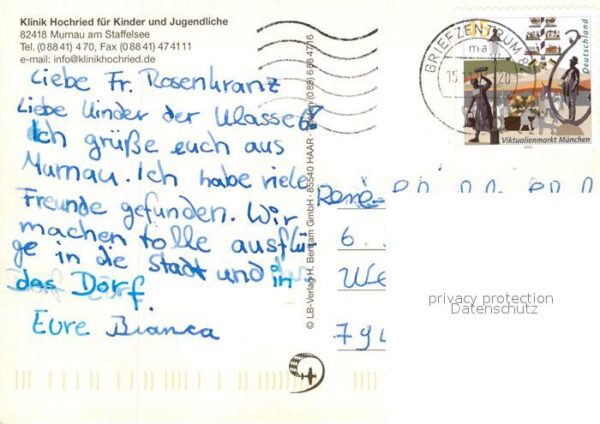 Klinik Hochried für Kinder und Jugendliche
82418 Murnau am Staffelsee
Tel. (0 88 41) 4 70, Fax (0 88 41) 47 41 11
e-mail: info@klinikhochried.de
Liebe Fr. Rosenkranz
Liebe Kinder der Klasse 6b
Ich grüße euch aus
Murnau. Ich habe viele
Freunde gefunden. Wir
machen tolle ausflü-
ge in die Stadt und in
das Dorf.
Eure Bianca
© LB-Verlag H. Bertram GmbH · 85540 HAAR
BRIEFZENTRUM
ma
15.
20
Deutschland
Viktualienmarkt München
René-
6.
We
79
privacy protection
Datenschutz